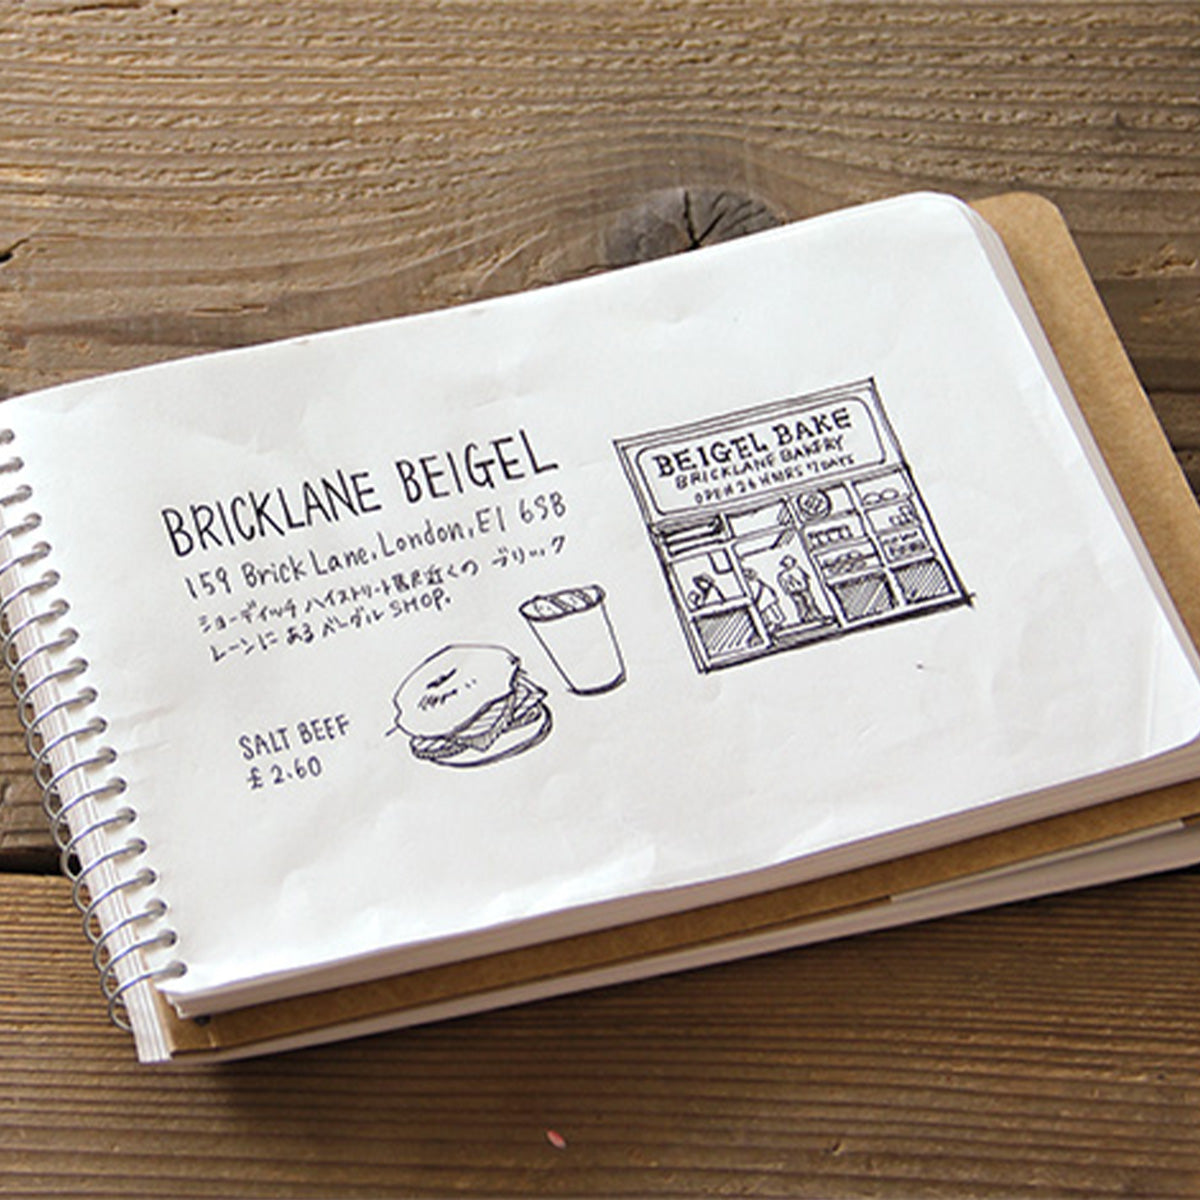 BRICKLANE BEIGEL
159 Brick Lane, London, E1 6SB
ショーディッチ ハイストリート駅近くの ブリック
レーンに ある ベーグル SHOP.
SALT BEEF
£2.60
BEIGEL BAKE
BRICKLANE BAKERY
OPEN 24 HOURS 7 DAYS